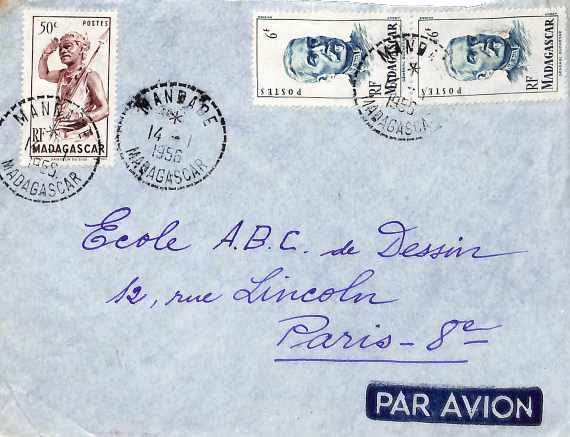 50c POSTES
RF
MADAGASCAR
MANDABE
14 - 1
1956
MADAGASCAR
6F
POSTES
RF
MADAGASCAR
6F
POSTES
RF
MADAGASCAR
MANDABE
1956
MADAGASCAR
MANDABE
1956
MADAGASCAR
Ecole A.B.C. de Dessin
12, rue Lincoln
Paris - 8e
PAR AVION